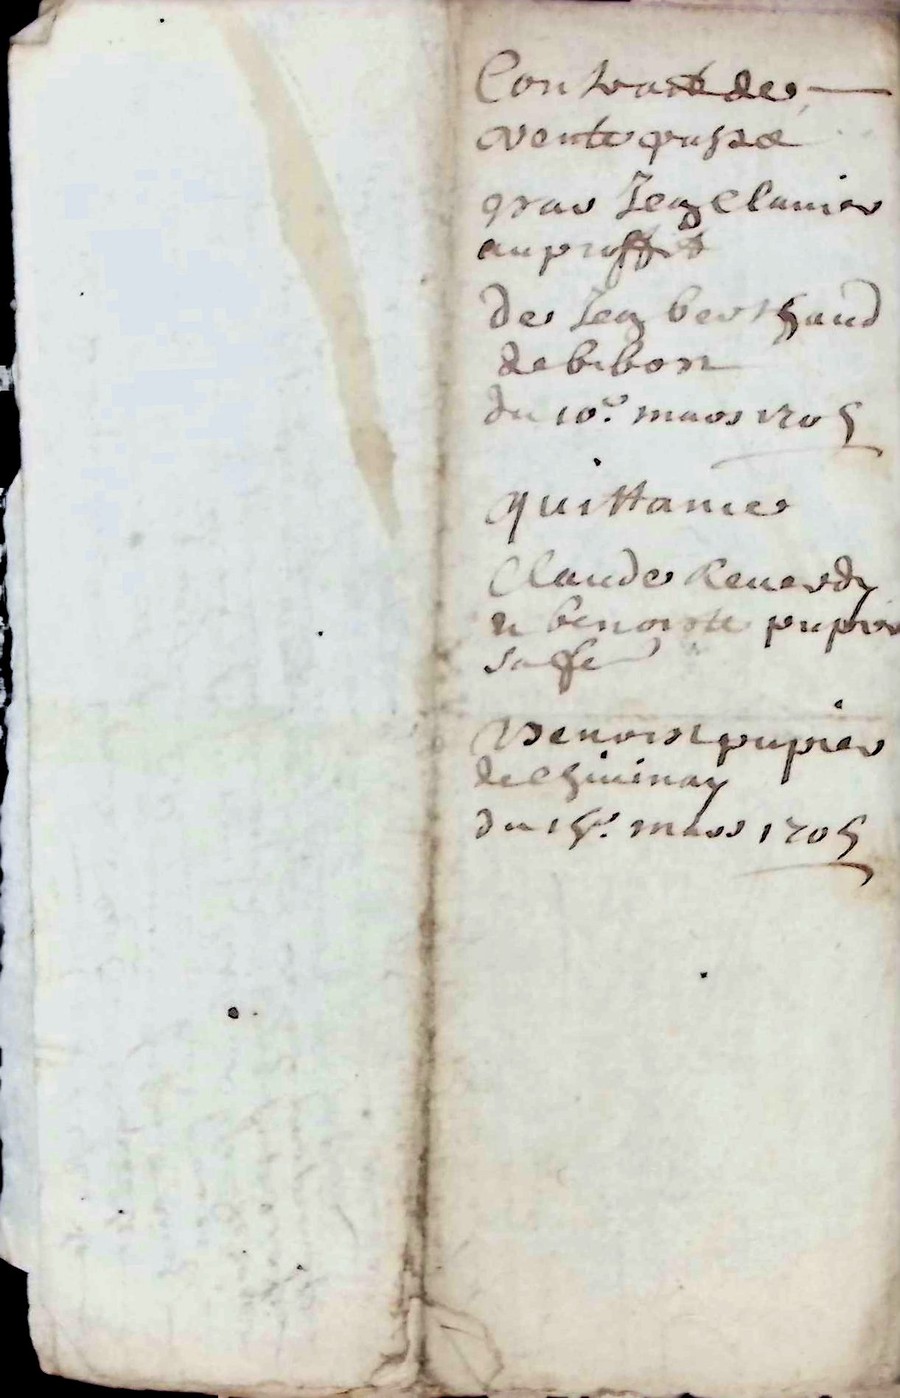 Contract de
vente passé
par Jean Clanier
au proffit
de Jean berthaud
de bibost
du 10e. mars 1705
quittance
Claude Reverdy
et benoiste pupier
sa fe
Benoist pupier
de Chivinay
du 15e. mars 1705